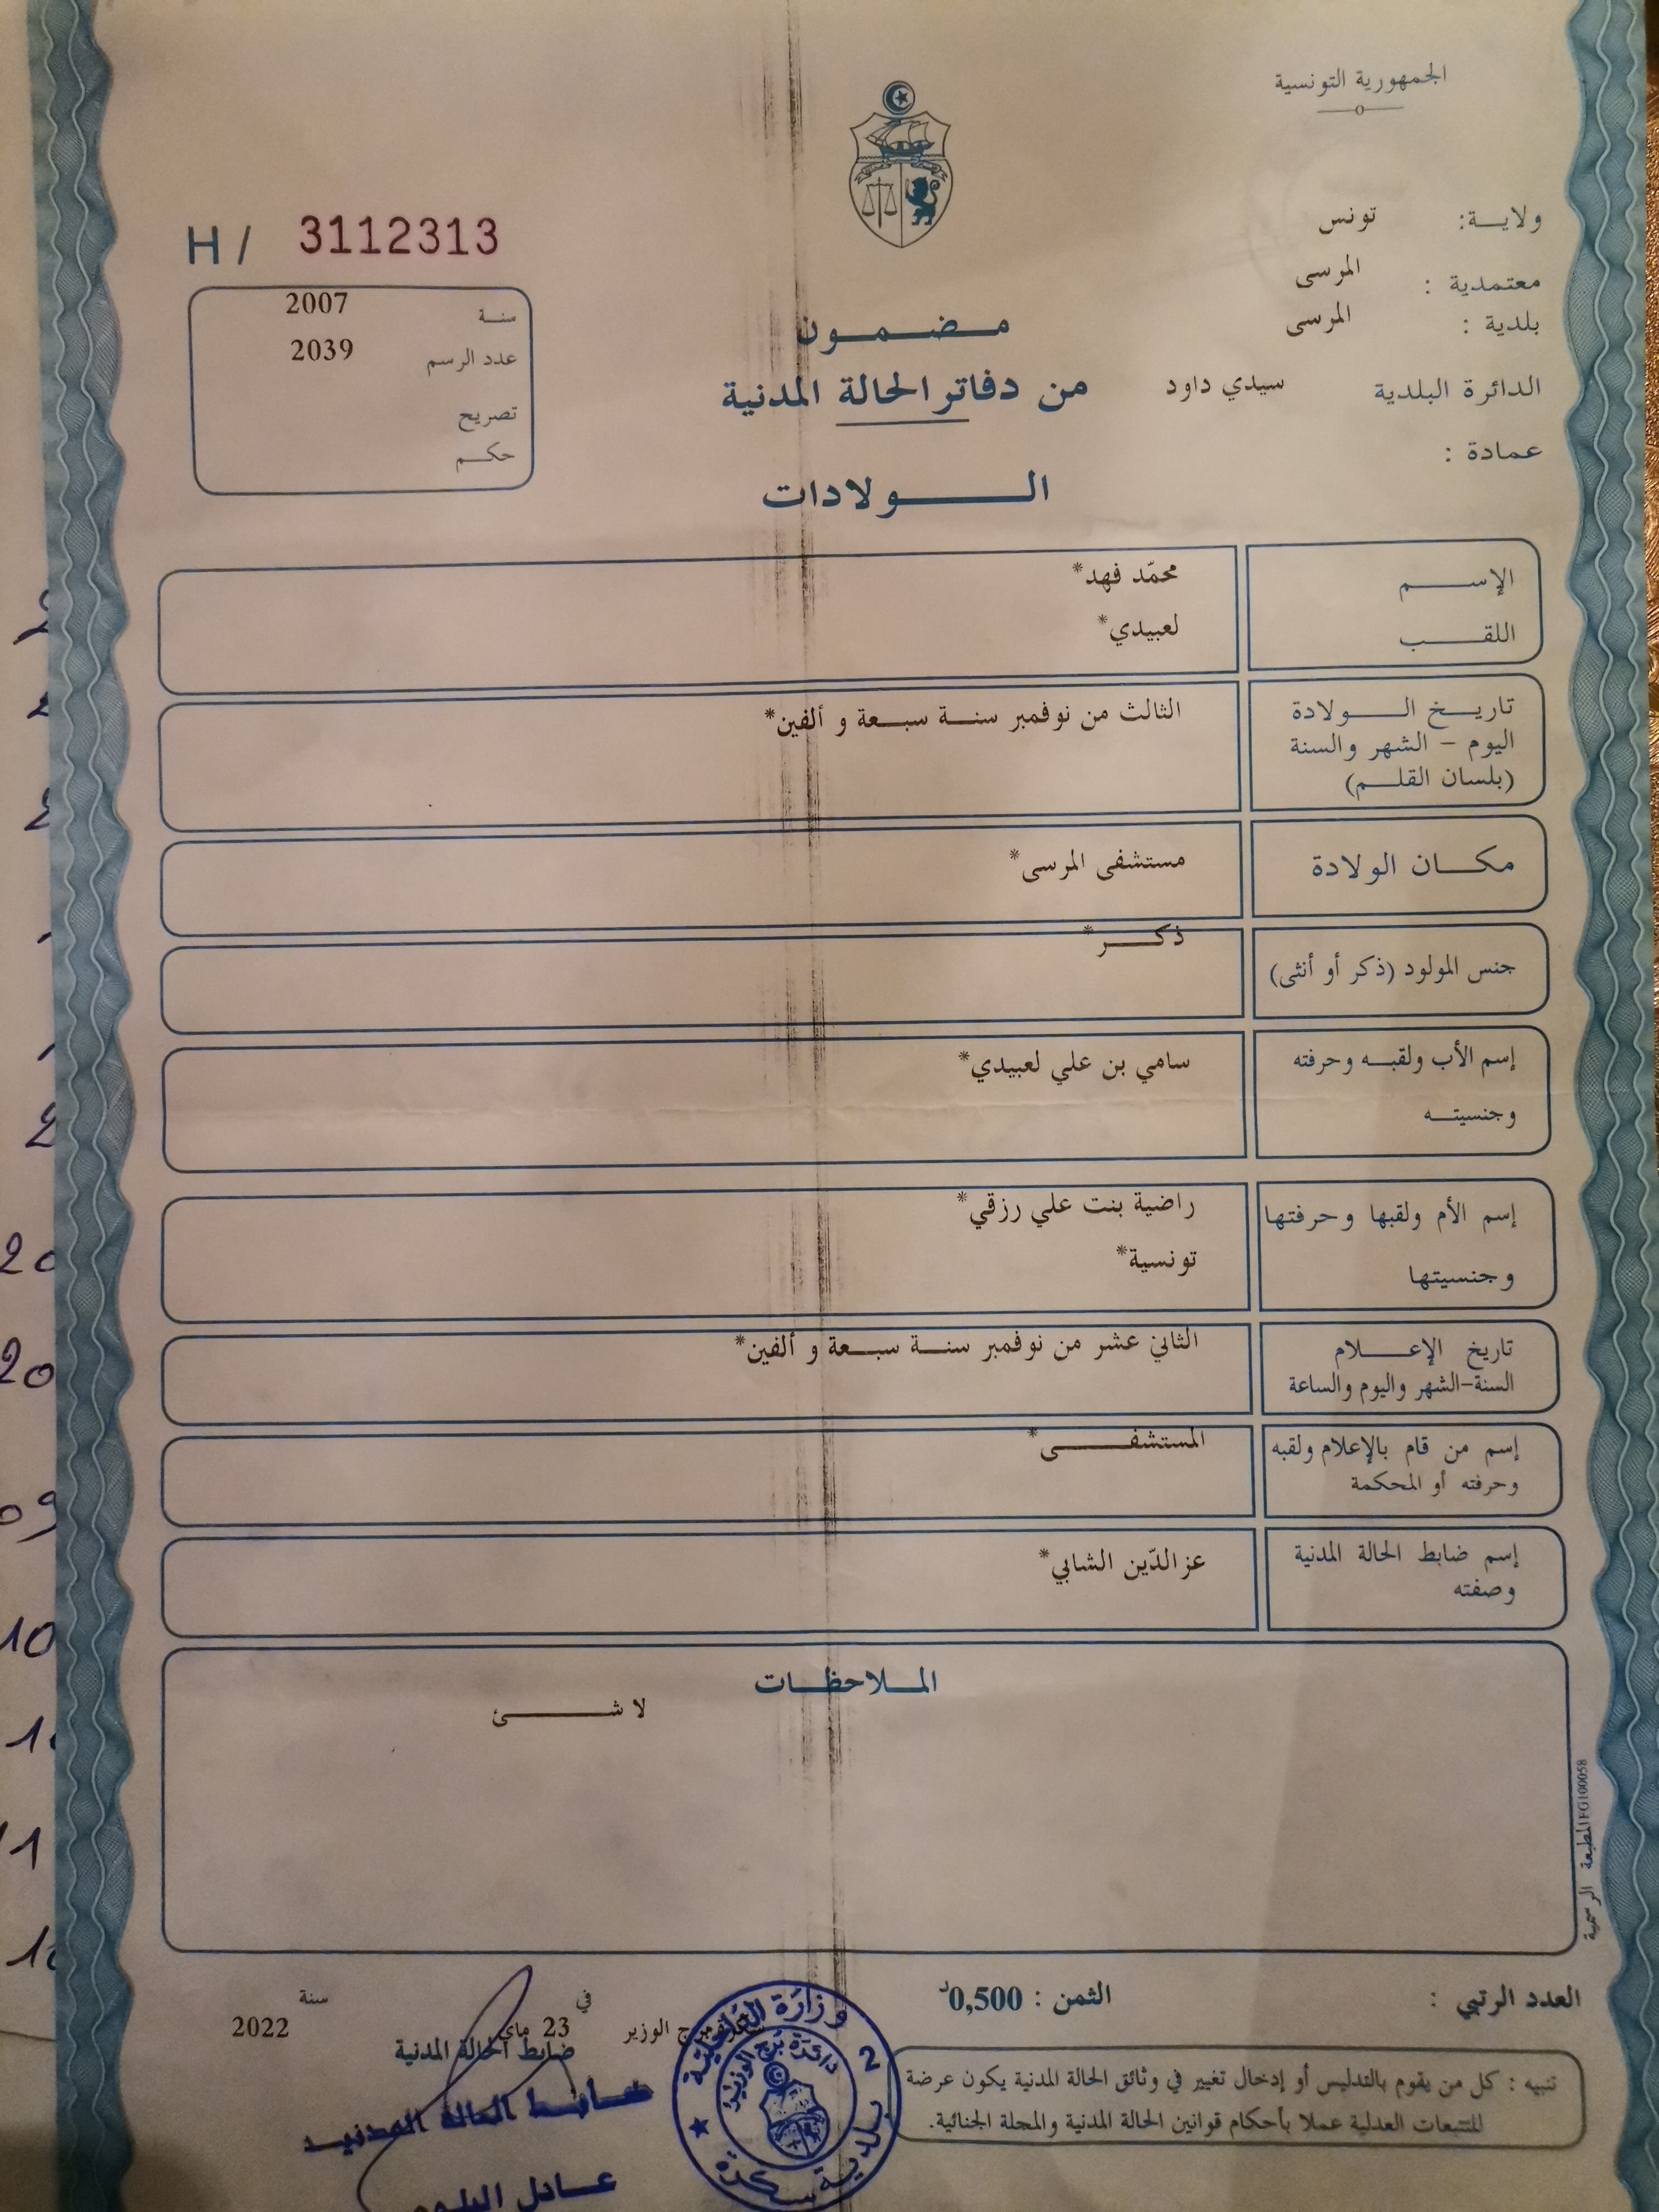 الجمهورية التونسية
ولايـــة: تونس
معتمدية : المرسى
بلدية : المرسى
الدائرة البلدية سيدي داود
عمادة :
H / 3112313
سنة 2007
عدد الرسم 2039
تصريح
حكم
مضمون
من دفاتر الحالة المدنية
الولادات
الإسم محمّد فهد*
اللقب لعبيدي*
تاريخ الولادة الثالث من نوفمبر سنة سبعة و ألفين*
اليوم - الشهر والسنة
(بلسان القلم)
مكان الولادة مستشفى المرسى*
جنس المولود (ذكر أو أنثى) ذكر*
إسم الأب ولقبه وحرفته سامي بن علي لعبيدي*
وجنسيته
إسم الأم ولقبها وحرفتها راضية بنت علي رزقي*
وجنسيتها تونسية*
تاريخ الإعلام الثاني عشر من نوفمبر سنة سبعة و ألفين*
السنة-الشهر واليوم والساعة
إسم من قام بالإعلام ولقبه المستشفى*
وحرفته أو المحكمة
إسم ضابط الحالة المدنية عزالدّين الشابي*
وصفته
الملاحظات
لا شئ
المطبعة الرسمية FG100058
العدد الرتبي : الثمن : 0,500د
برج الوزير في 23 ماي سنة 2022
ضابط الحالة المدنية
ضابط الحالة المدنية
عادل
وزارة الداخلية
دائرة برج الوزير
بلدية سكرة
2
تنبيه : كل من يقوم بالتدليس أو إدخال تغيير في وثائق الحالة المدنية يكون عرضة
للتتبعات العدلية عملا بأحكام قوانين الحالة المدنية والمجلة الجنائية.
20
20
09
10